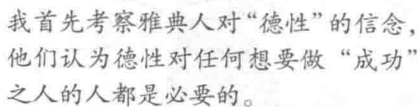 我首先考察雅典人对“德性”的信念，
他们认为德性对任何想要做“成功”
之人的人都是必要的。